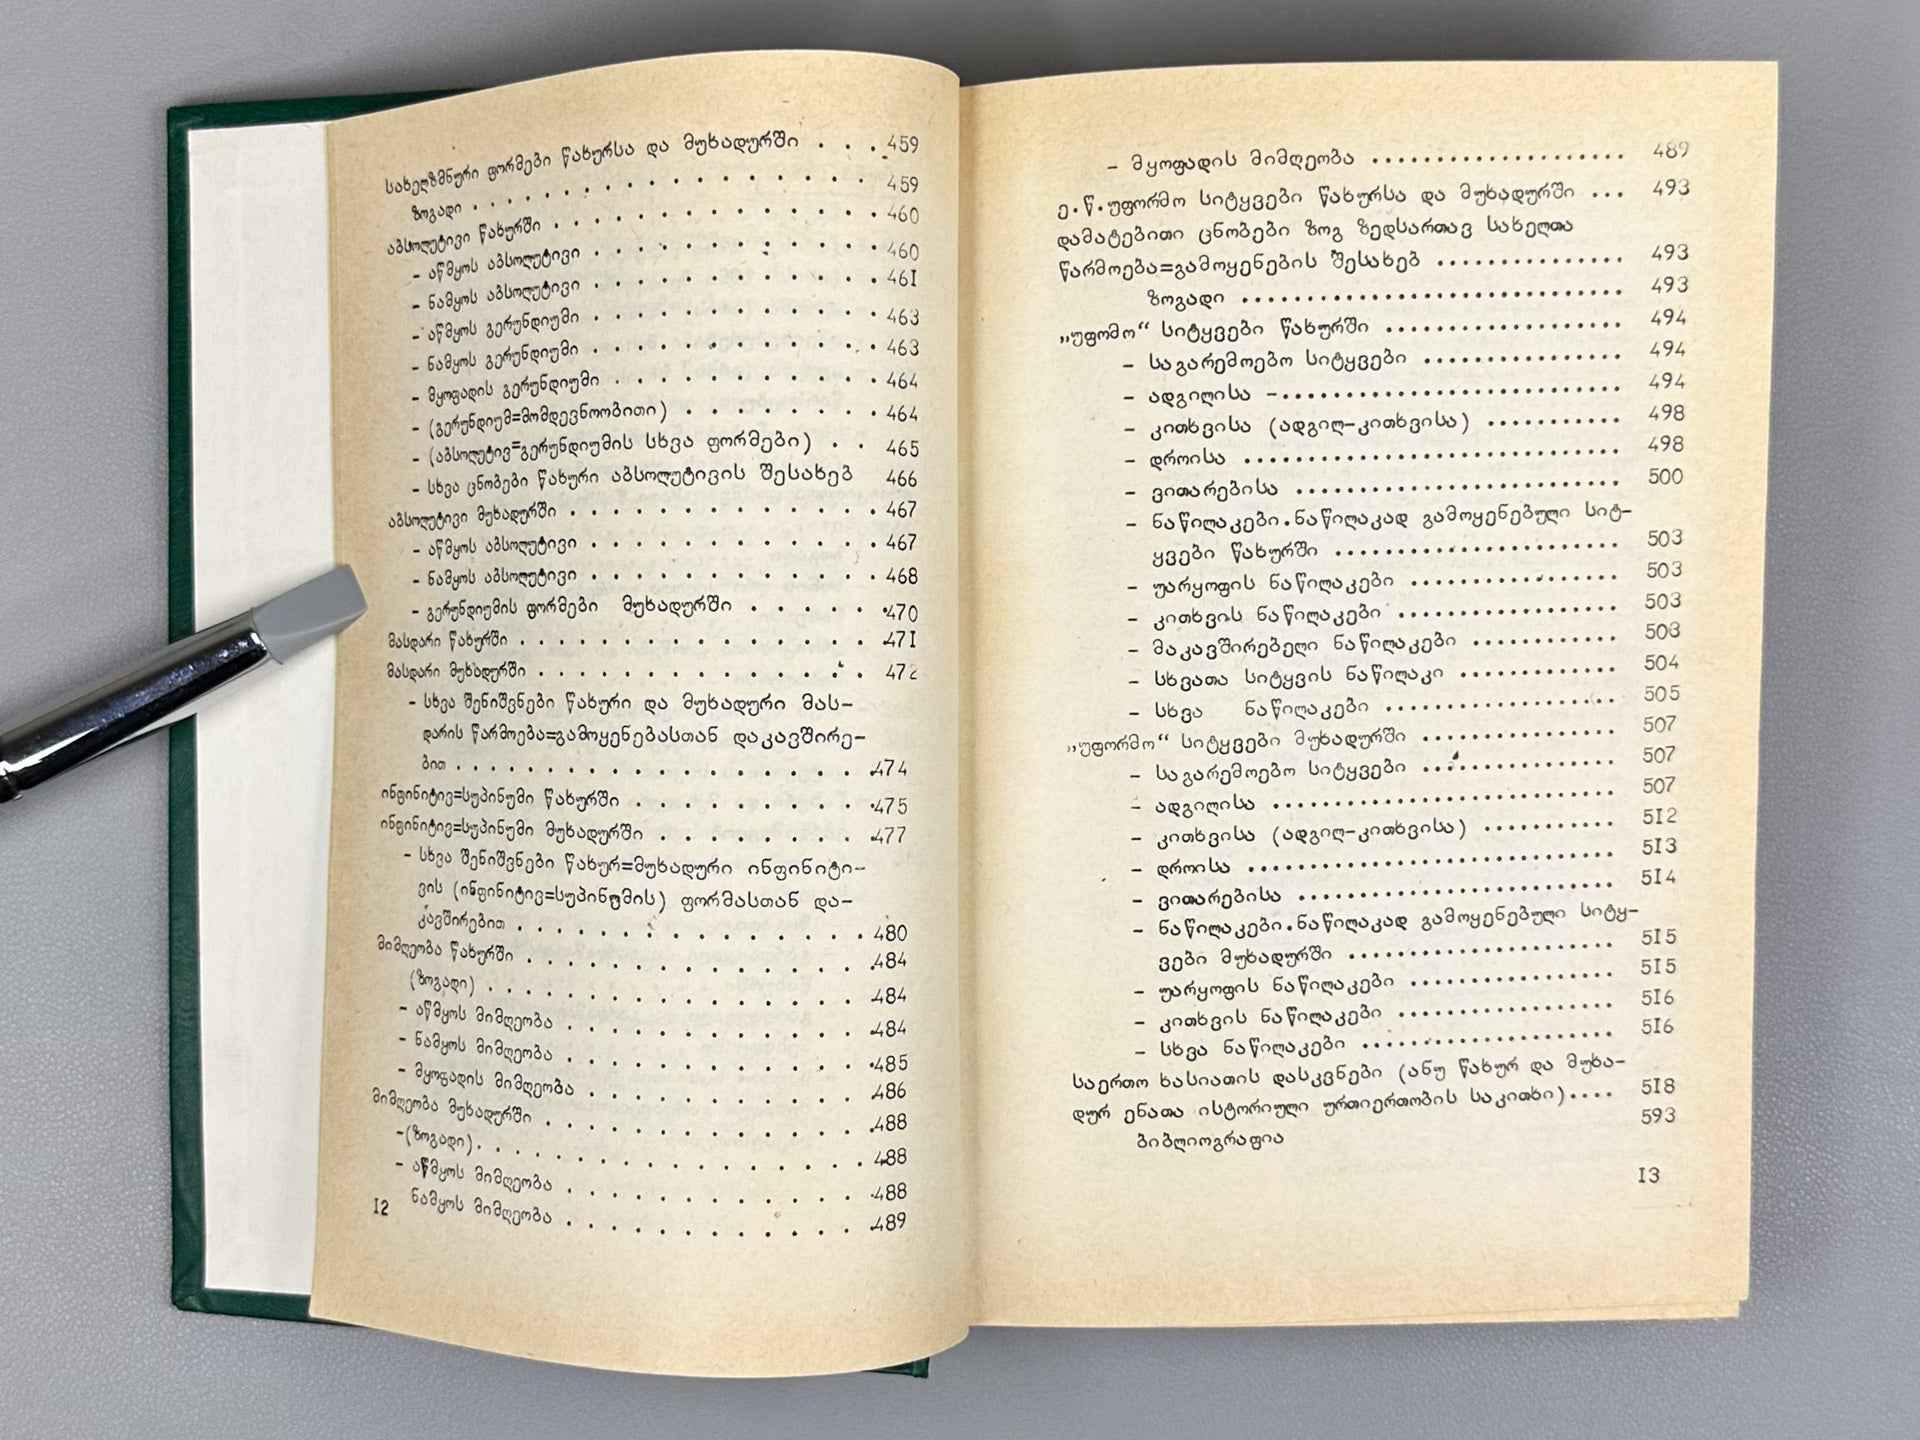 სახელზმნური ფორმები წახურსა და მუხადურში . . . 459
ზოგადი . . . . . . . . . . . . . . . . 459
აბსოლუტივი წახურში . . . . . . . . . . . . 460
- აწმყოს აბსოლუტივი . . . . . . . . . . . 460
- ნამყოს აბსოლუტივი . . . . . . . . . . . 461
- აწმყოს გერუნდიუმი . . . . . . . . . . . 463
- ნამყოს გერუნდიუმი . . . . . . . . . . . 463
- მყოფადის გერუნდიუმი . . . . . . . . . . 464
- (გერუნდიუმ=მომდევნოობითი) . . . . . . . 464
- (აბსოლუტივ=გერუნდიუმის სხვა ფორმები) . . 465
- სხვა ცნობები წახური აბსოლუტივის შესახებ 466
აბსოლუტივი მუხადურში . . . . . . . . . . . 467
- აწმყოს აბსოლუტივი . . . . . . . . . . . 467
- ნამყოს აბსოლუტივი . . . . . . . . . . . 468
- გერუნდიუმის ფორმები მუხადურში . . . . . . 470
მასდარი წახურში . . . . . . . . . . . . . . 471
მასდარი მუხადურში . . . . . . . . . . . . . 472
- სხვა შენიშვნები წახური და მუხადური მას-
დარის წარმოება=გამოყენებასთან დაკავშირე-
ბით . . . . . . . . . . . . . . . . . . 474
ინფინიტივ=სუპინუმი წახურში . . . . . . . . . 475
ინფინიტივ=სუპინუმი მუხადურში . . . . . . . . 477
- სხვა შენიშვნები წახურ=მუხადური ინფინიტი-
ვის (ინფინიტივ=სუპინუმის) ფორმასთან და-
კავშირებით . . . . . . . . . . . . . . 480
მიმღეობა წახურში . . . . . . . . . . . . . 484
(ზოგადი) . . . . . . . . . . . . . . . 484
- აწმყოს მიმღეობა . . . . . . . . . . . . 484
- ნამყოს მიმღეობა . . . . . . . . . . . . 485
- მყოფადის მიმღეობა . . . . . . . . . . . 486
მიმღეობა მუხადურში . . . . . . . . . . . . 488
-(ზოგადი). . . . . . . . . . . . . . . . 488
- აწმყოს მიმღეობა . . . . . . . . . . . . 488
ნამყოს მიმღეობა . . . . . . . . . . . . 489
I2
- მყოფადის მიმღეობა .................... 489
ე.წ.უფორმო სიტყვები წახურსა და მუხადურში ... 493
დამატებითი ცნობები ზოგ ზედსართავ სახელთა
წარმოება=გამოყენების შესახებ ............... 493
ზოგადი ............................. 493
„უფომო“ სიტყვები წახურში .................. 494
- საგარემოებო სიტყვები ................ 494
- ადგილისა -.......................... 494
- კითხვისა (ადგილ-კითხვისა) ........... 498
- დროისა ............................. 498
- ვითარებისა ......................... 500
- ნაწილაკები.ნაწილაკად გამოყენებული სიტ-
ყვები წახურში ...................... 503
- უარყოფის ნაწილაკები ................. 503
- კითხვის ნაწილაკები .................. 503
- მაკავშირებელი ნაწილაკები ............ 503
- სხვათა სიტყვის ნაწილაკი ............. 504
- სხვა ნაწილაკები .................. 505
„უფორმო“ სიტყვები მუხადურში ............... 507
- საგარემოებო სიტყვები ............... 507
- ადგილისა ........................... 507
- კითხვისა (ადგილ-კითხვისა) .......... 5I2
- დროისა ............................. 5I3
- ვითარებისა ......................... 5I4
- ნაწილაკები.ნაწილაკად გამოყენებული სიტყ-
ვები მუხადურში ..................... 5I5
- უარყოფის ნაწილაკები ................ 5I5
- კითხვის ნაწილაკები ................. 5I6
- სხვა ნაწილაკები .................... 5I6
საერთო ხასიათის დასკვნები (ანუ წახურ და მუხა-
დურ ენათა ისტორიული ურთიერთობის საკითხი).... 5I8
ბიბლიოგრაფია 593
I3